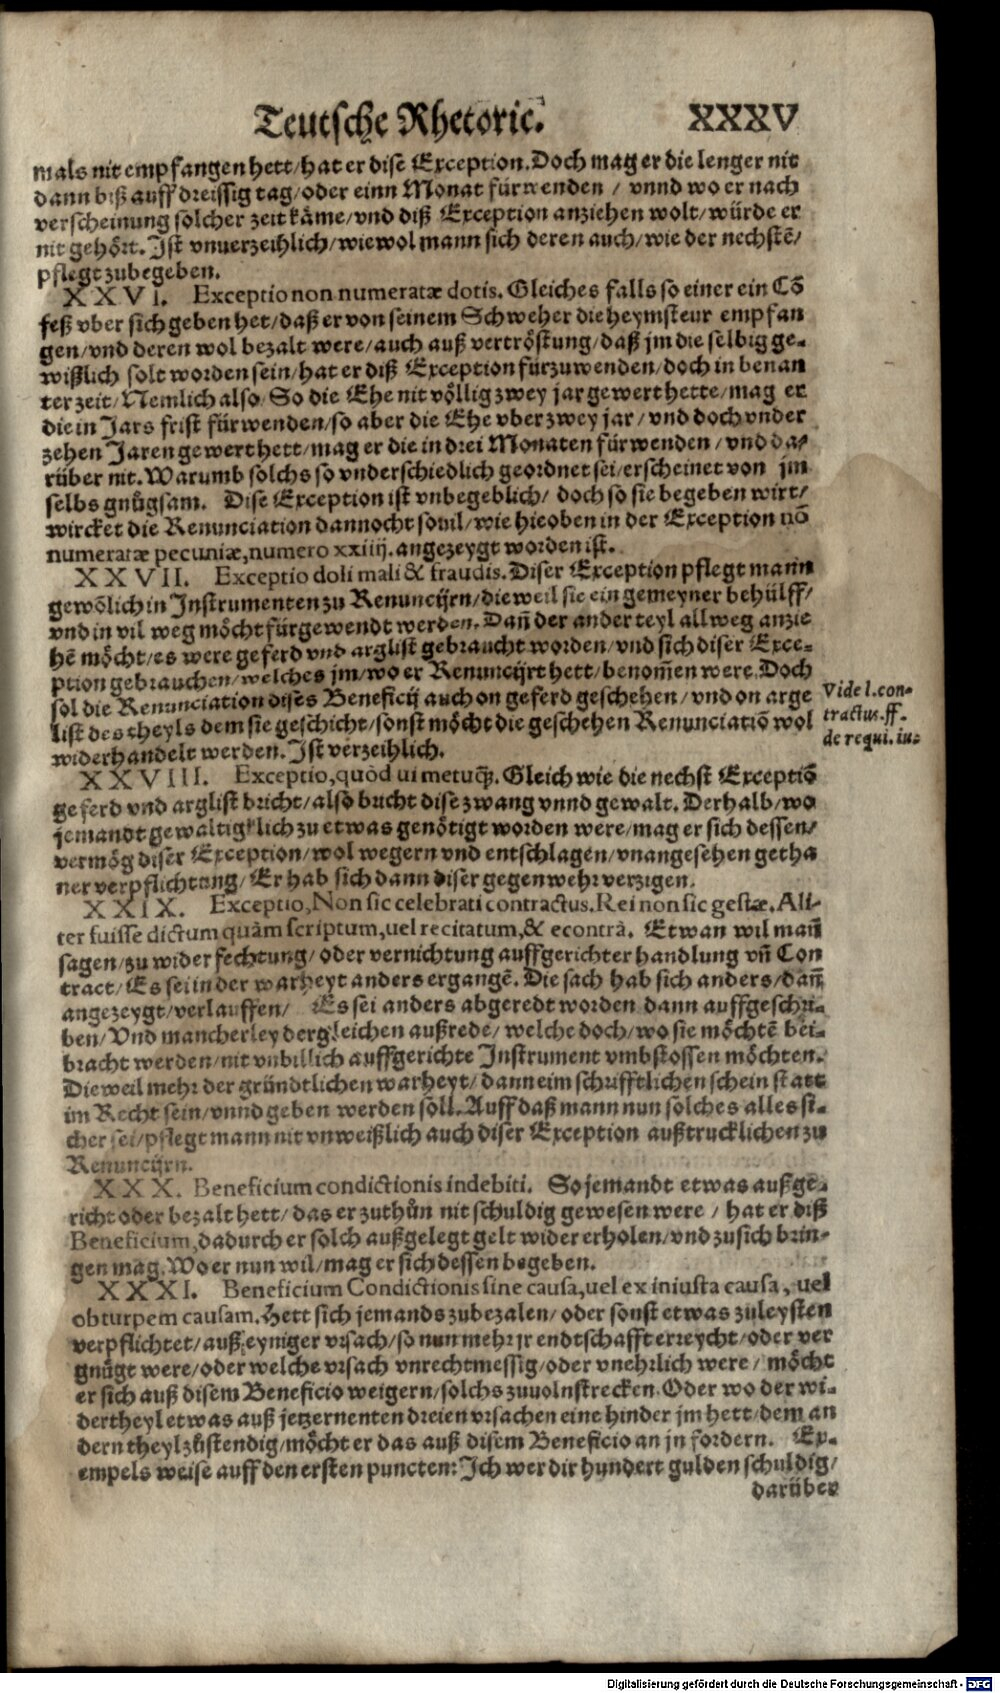 Teutsche Rhetoric. XXXV
mals nit empfangen hett/hat er dise Exception. Doch mag er die lenger nit
dann biß auff dreissig tag/oder einn Monat fürwenden / vnnd wo er nach
verscheinung solcher zeit käme/vnd diß Exception anziehen wolt/würde er
nit gehört. Ist vnuerzeihlich/wiewol mann sich deren auch/wie der nechstē/
pflegt zubegeben.
XXVI. Exceptio non numeratæ dotis. Gleiches falls so einer ein Cō
feß vber sich geben het/daß er von seinem Schweher die heymsteur empfan
gen/vnd deren wol bezalt were/auch auß vertröstung/daß jm die selbig ge-
wißlich solt worden sein/hat er diß Exception fürzuwenden/doch in benan
ter zeit/Nemlich also/So die Ehe nit völlig zwey jar gewert hette/mag er
die in Jars frist fürwenden/so aber die Ehe vber zwey jar/vnd doch vnder
zehen Jaren gewert hett/mag er die in drei Monaten fürwenden/vnd da-
rüber nit. Warumb solchs so vnderschiedlich geordnet sei/erscheinet von jm
selbs gnůgsam. Dise Exception ist vnbegeblich/ doch so sie begeben wirt/
wircket die Renunciation dannocht souil/wie hieoben in der Exception nō
numeratæ pecuniæ,numero xxiiij. angezeygt worden ist.
XXVII. Exceptio doli mali & fraudis. Diser Exception pflegt mann
gewōlich in Instrumenten zu Renuncijrn/dieweil sie ein gemeyner behülff/
vnd in vil weg möcht fürgewendt werden. Dañ der ander teyl allweg anzie
hē möcht/es were geferd vnd arglist gebraucht worden/vnd sich diser Exce-
ption gebrauchen/welches jm/wo er Renuncijrt hett/benom̄en were. Doch
sol die Renunciation dises Beneficij auch on geferd geschehen/vnd on arge
list des theyls dem sie geschicht/sonst möcht die geschehen Renunciatiō wol
widerhandelt werden. Ist verzeihlich.
Vide l.con-
tractus.ff.
de requi.iu:
XXVIII. Exceptio,quòd ui metuq́. Gleich wie die nechst Exceptiō
geferd vnd arglist bricht/also bricht dise zwang vnnd gewalt. Derhalb/wo
jemandt gewaltigklich zu etwas genötigt worden were/mag er sich dessen/
vermög diser Exception/wol wegern vnd entschlagen/vnangesehen getha
ner verpflichtung/Er hab sich dann diser gegenwehr verzigen.
XXIX. Exceptio,Non sic celebrati contractus. Rei non sic gestæ. Ali-
ter fuisse dictum quàm scriptum,uel recitatum,& econtrà. Etwan wil mañ
sagen/zu widerfechtung/oder vernichtung auffgerichter handlung vñ Con
tract/Es sei in der warheyt anders ergangē. Die sach hab sich anders/dañ
angezeygt/verlauffen/ Es sei anders abgeredt worden dann auffgeschri-
ben/Vnd mancherley dergleichen außrede/welche doch/wo sie möchtē bei-
bracht werden/nit vnbillich auffgerichte Instrument vmbstossen möchten.
Dieweil mehr der gründtlichen warheyt/dann eim schrifftlichen schein statt
im Recht sein/vnnd geben werden soll. Auff daß mann nun solches alles si-
cher sei/pflegt mann nit vnweißlich auch diser Exception außtrucklichen zu
Renuncijrn.
XXX. Beneficium condictionis indebiti. So jemandt etwas außge-
richt oder bezalt hett/das er zuthůn nit schuldig gewesen were/hat er diß
Beneficium,dadurch er solch außgelegt gelt wider erholen/vnd zu sich brin-
gen mag. Wo er nun wil/mag er sich dessen begeben.
XXXI. Beneficium Condictionis sine causa,uel ex iniusta causa, uel
ob turpem causam. Hett sich jemands zubezalen/oder sonst etwas zuleysten
verpflichtet/auß eyniger vrsach/so nun mehr jr endtschafft erreycht/oder ver
gnůgt were/oder welche vrsach vnrechtmessig/oder vnehrlich were/ möcht
er sich auß disem Beneficio weigern/solchs zuuolnstrecken. Oder wo der wi-
dertheyl etwas auß jetzernenten dreien vrsachen eine hinder jm hett/dem an
dern theyl zůstendig/möcht er das auß disem Beneficio an jn fordern. Ex-
empels weise auff den ersten puncten: Ich wer dir hundert gulden schuldig/
darüber
Digitalisierung gefördert durch die Deutsche Forschungsgemeinschaft - DFG